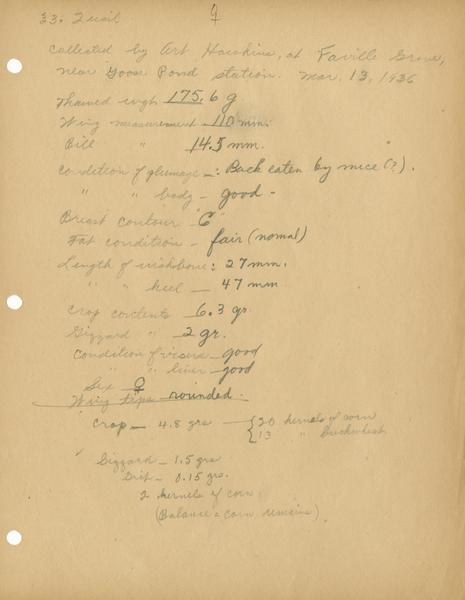 33. Quail ♀
collected by Art Hawkins, at Faville Grove,
near Goose Pond station. Mar. 13, 1936
Thawed wgh 175.6 g
Wing measurement 110 mm.
Bill " 14.5 mm.
Condition of plumage —: Back eaten by mice (?).
" " body — good -
Breast contour "C"
Fat condition — fair (normal)
Length of wishbone: 27 mm.
" " keel — 47 mm
Crop contents — 6.3 gr.
Gizzard " — 2 gr.
Condition of viscera — good
" " liver — good
Sex ♀
Wing tips rounded.
Crop — 4.8 grs — { 20 kernels of corn
13 " Buckwheat
Gizzard — 1.5 grs
Grit — 0.15 grs.
2 kernels of corn
(Balance = corn remains)